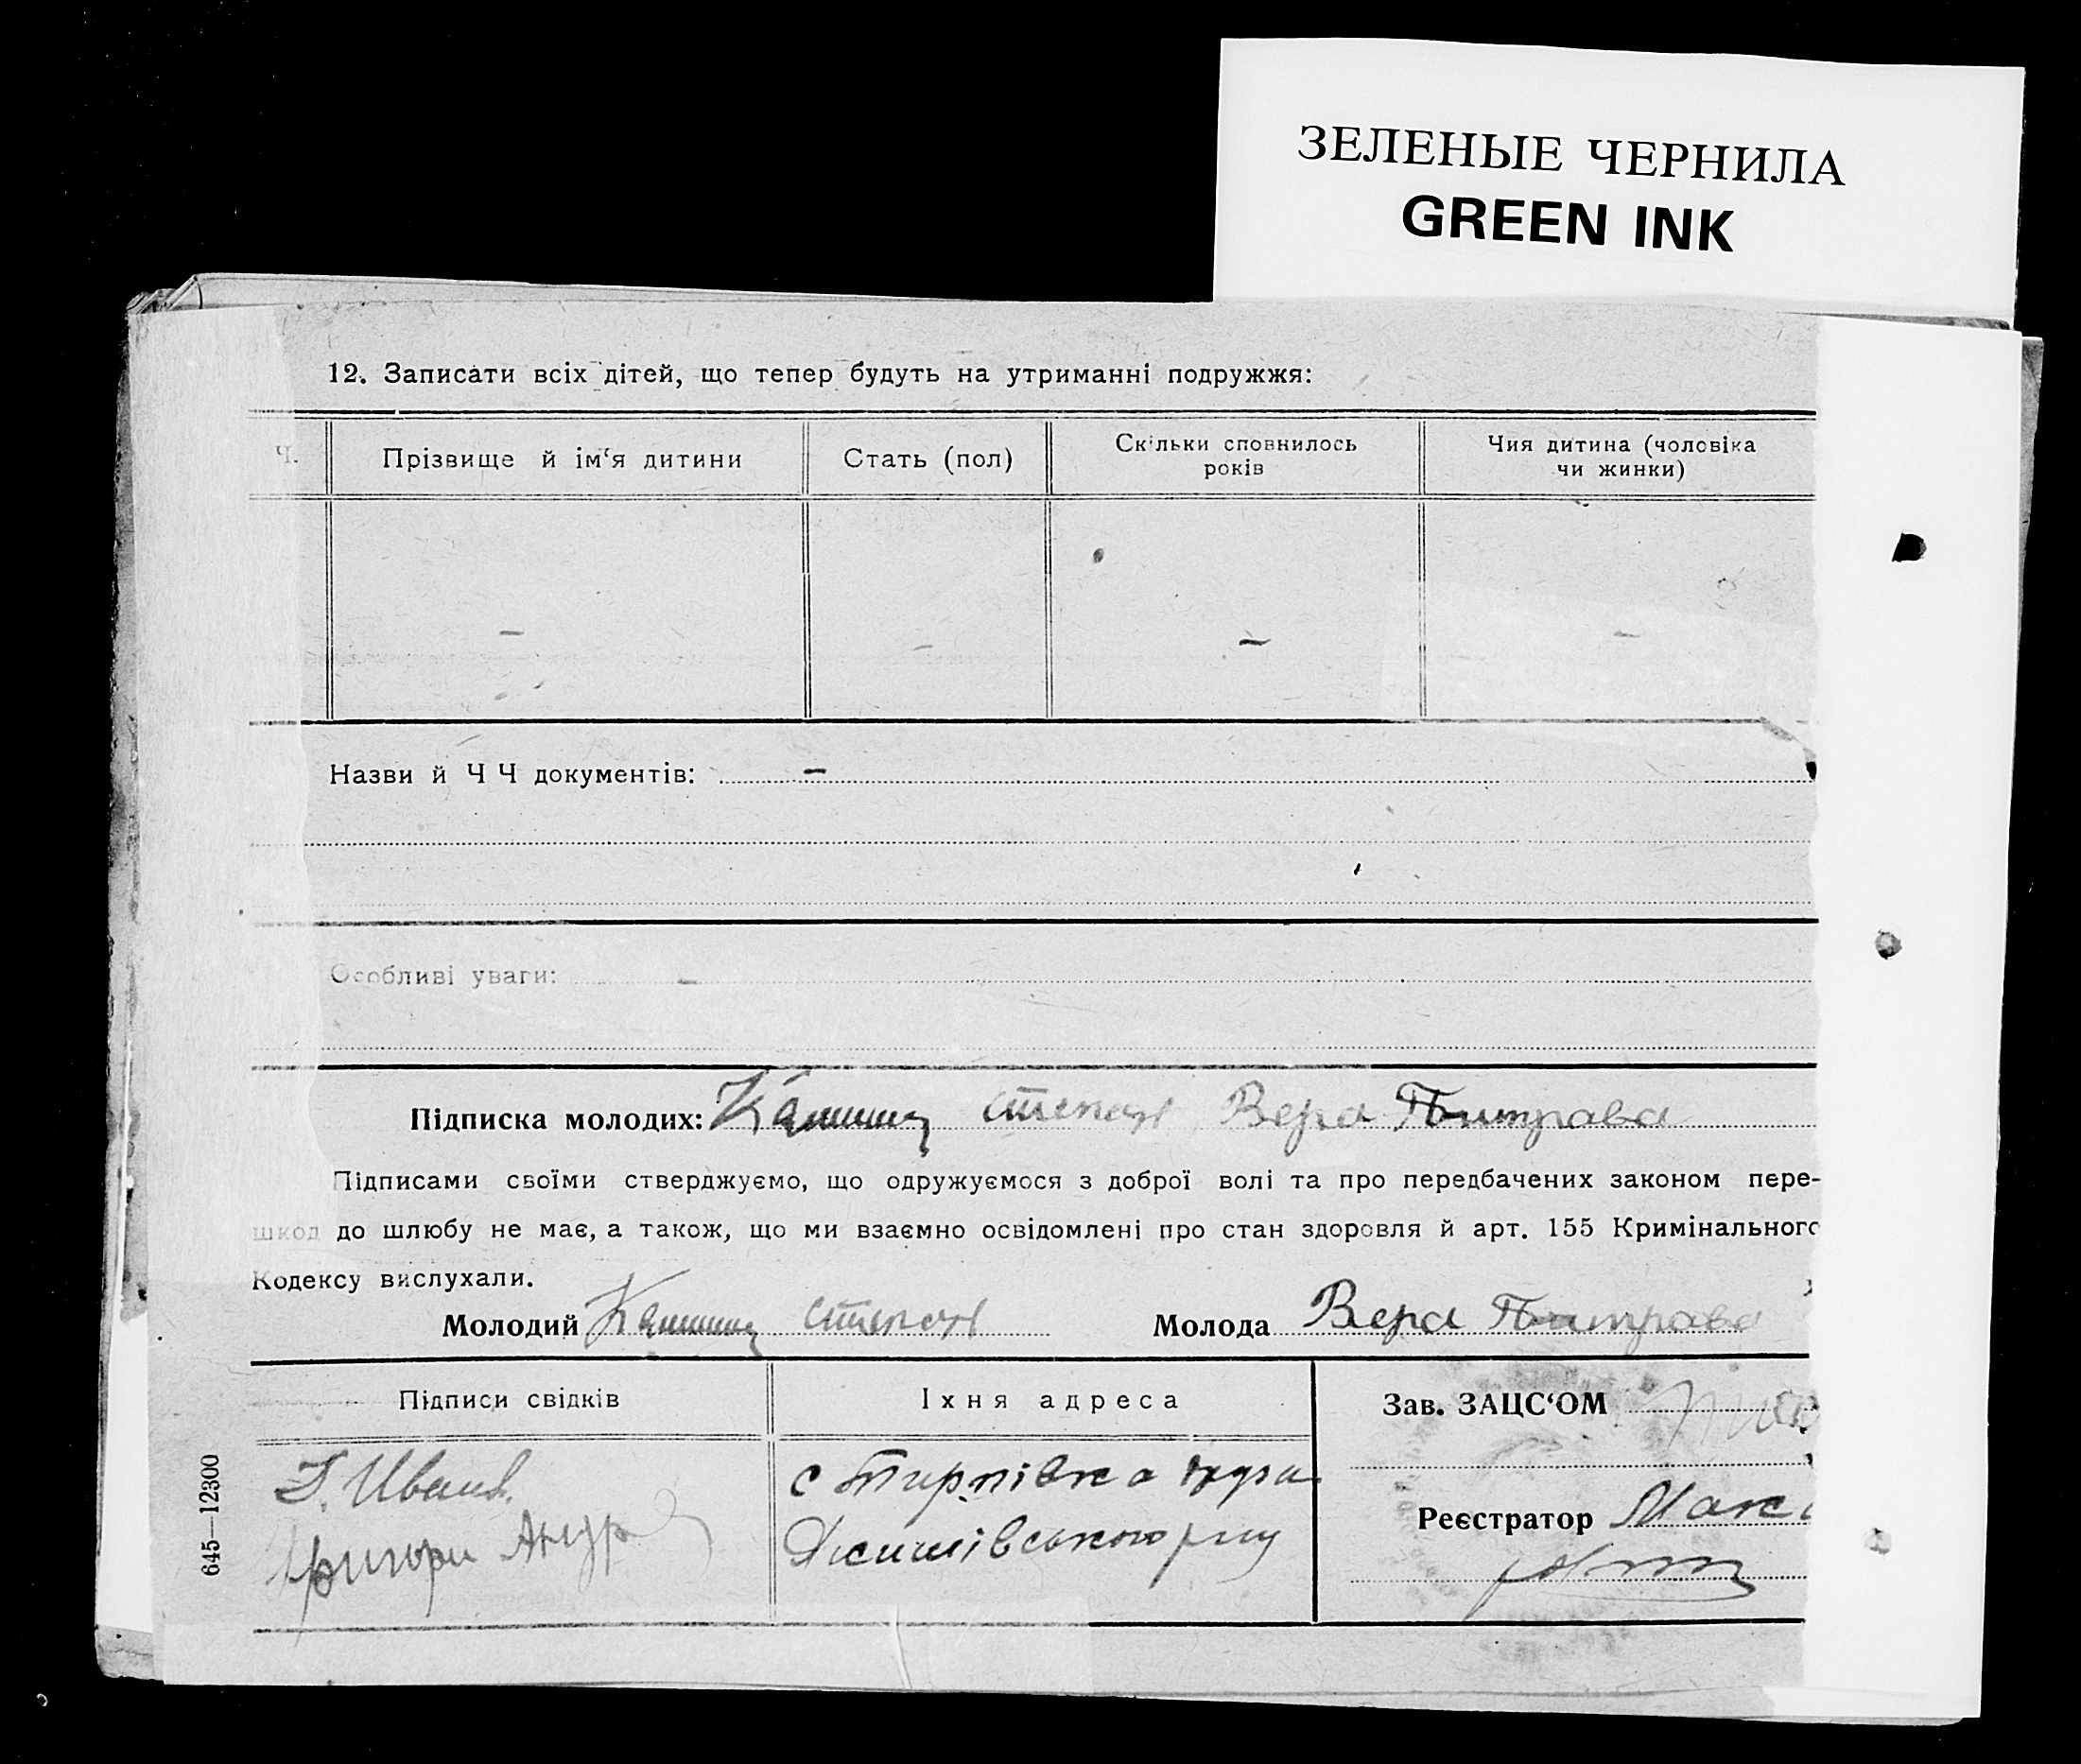 ЗЕЛЕНЫЕ ЧЕРНИЛА
GREEN INK
12. Записати всіх дітей, що тепер будуть на утриманні подружжя:
Ч. Прізвище й ім‘я дитини Стать (пол) Скільки сповнилось років Чия дитина (чоловіка чи жинки)
– – – –
Назви й Ч Ч документів: –
Особливі уваги: –
Підписка молодих: степан Вера
Підписами своїми стверджуємо, що одружуємося з доброї волі та про передбачених законом пере-
шкод до шлюбу не має, а також, що ми взаємно освідомлені про стан здоровля й арт. 155 Кримінального
Кодексу вислухали.
Молодий степан Молода Вера
Підписи свідків Їхня адреса Зав. ЗАЦС‘ОМ
с
Реєстратор
645—12300